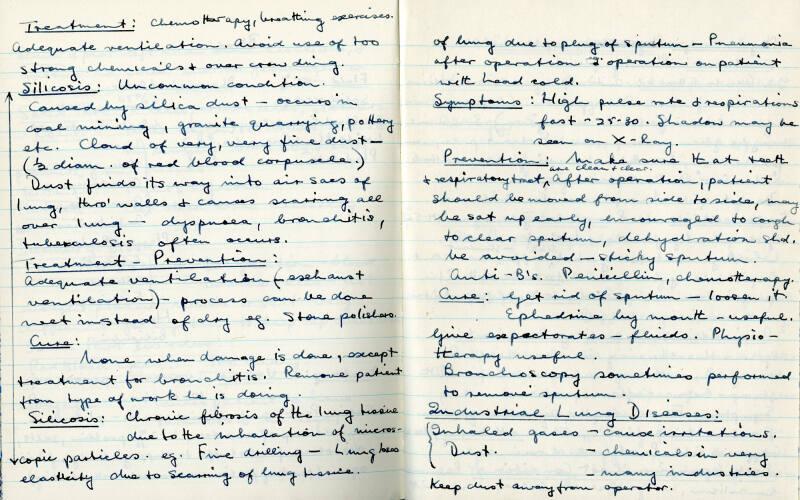 Treatment: Chemotherapy, breathing exercises.
Adequate ventilation. Avoid use of too
strong chemicals & over crowding.
Silicosis: Uncommon condition.
Caused by silica dust - occurs in
coal mining, granite quarrying, pottery
etc. Cloud of very, very fine dust -
(½ diam. of red blood corpuscle.)
Dust finds its way into air sacs of
lung, thro' walls & causes scarring all
over lung - dyspnoea, bronchitis,
tuberculosis often occurs.
Treatment - Prevention:
Adequate ventilation (exhaust
ventilation) - process can be done
wet instead of dry eg. Stone polishers.
Cure:
None when damage is done, except
treatment for bronchitis. Remove patient
from type of work he is doing.
Silicosis: Chronic fibrosis of the lung tissue
due to the inhalation of micros-
copic particles. eg. Fine drilling - Lung loses
elasticity due to scarring of lung tissue.
of lung due to plug of sputum - Pneumonia
after operation & operation on patient
with head cold.
Symptoms: High pulse rate & respirations
fast - 25-30. Shadow may be
seen on X-Ray.
Prevention: Make sure that teeth
& respiratory tract, are clean & clear. After operation, patient
should be moved from side to side, may
be sat up early, encouraged to cough
to clear sputum, dehydration shd.
be avoided - sticky sputum.
Anti-B's. Penicillin, chemotherapy.
Cure: Get rid of sputum - loosen it
Ephedrine by mouth - useful.
Give expectorates - fluids. Physio-
therapy useful.
Bronchoscopy sometimes performed
to remove sputum.
Industrial Lung Diseases:
Inhaled gases - cause irritations.
Dust. - chemicals in very
- many industries.
Keep dust away from operator.